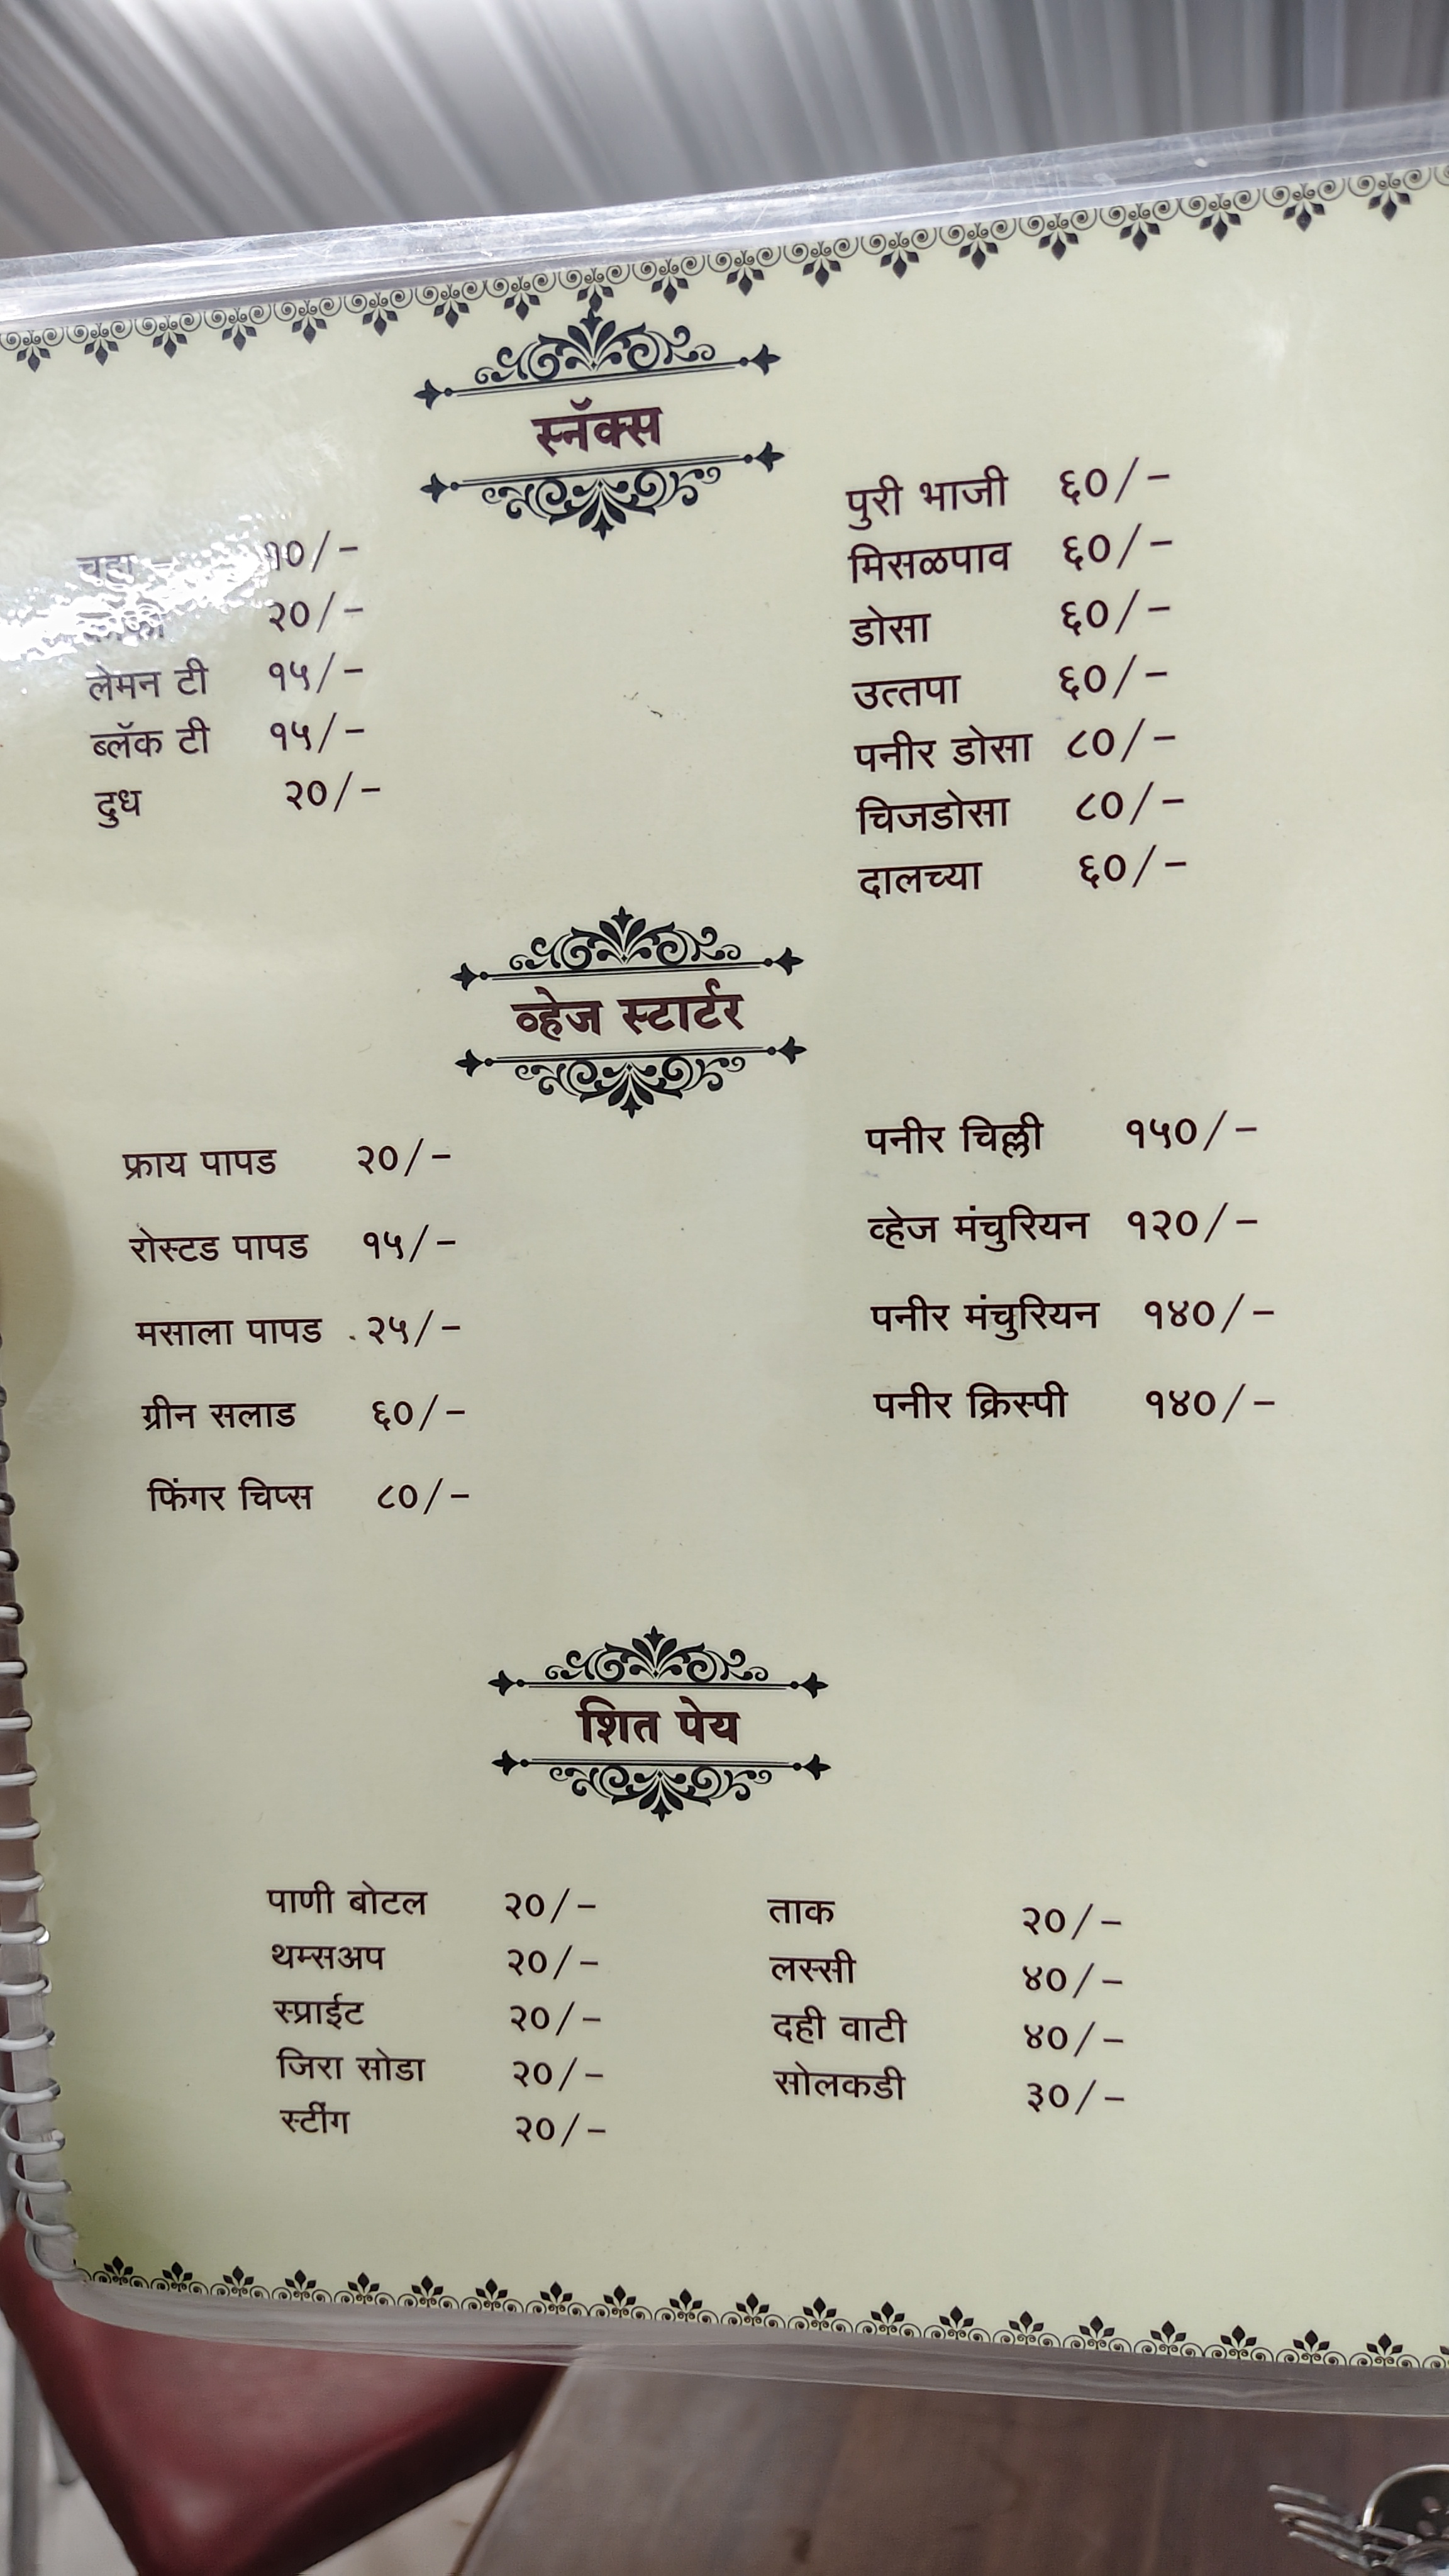 स्नॅक्स
चहा १०/-
२०/-
लेमन टी १५/-
ब्लॅक टी १५/-
दुध २०/-
पुरी भाजी ६०/-
मिसळपाव ६०/-
डोसा ६०/-
उत्तपा ६०/-
पनीर डोसा ८०/-
चिजडोसा ८०/-
दालच्या ६०/-
व्हेज स्टार्टर
फ्राय पापड २०/-
रोस्टड पापड १५/-
मसाला पापड . २५/-
ग्रीन सलाड ६०/-
फिंगर चिप्स ८०/-
पनीर चिल्ली १५०/-
व्हेज मंचुरियन १२०/-
पनीर मंचुरियन १४०/-
पनीर क्रिस्पी १४०/-
शित पेय
पाणी बोटल २०/-
थम्सअप २०/-
स्प्राईट २०/-
जिरा सोडा २०/-
स्टींग २०/-
ताक २०/-
लस्सी ४०/-
दही वाटी ४०/-
सोलकडी ३०/-